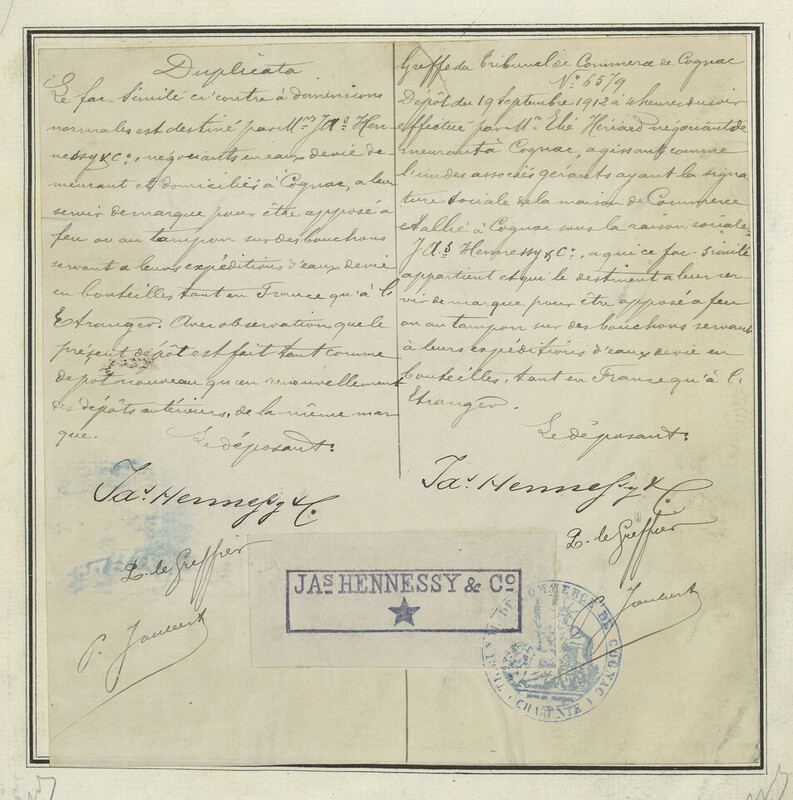 Duplicata
Le fac-Similé ci-contre à dimensions
normales est destiné par Mrs JAs Hen-
nessy & Co, négociants en eaux de vie de-
meurant et domiciliés à Cognac, a leur
servir de marque pour être apposé à
feu ou au tampon sur des bouchons
servant a leurs expéditions d'eaux de vie
en bouteilles tant en France qu'à l'
Etranger. Avec observation que le
présent dépôt est fait tant comme
depot nouveau qu'en renouvellement
des dépôts antérieurs, de la même mar-
que.
Le déposant:
Jas Hennessy & Co.
P. le Greffier
P. Joubert
Greffe du Tribunal de Commerce de Cognac
No 6579
Dépôt du 19 Septembre 1912 à 4 heures du soir
effectué par Mr Elié Hériard négociant de-
meurant à Cognac, agissant comme
l'un des associés gérants ayant la signa-
ture sociale de la maison de Commerce
établie à Cognac sous la raison sociale,
JAs Hennessy & Co, a qui ce fac-Similé
appartient et qui le destinent a leur ser-
vir de marque pour être apposé a feu
ou au tampon sur des bouchons servant
à leurs expéditions d'eaux de vie en
bouteilles, tant en France qu'à l'
Etranger.
Le déposant:
Jas Hennessy & Co.
P. le Greffier
P. Joubert
JAS HENNESSY & Co
TRIBUNAL DE COMMERCE DE COGNAC
(CHARENTE)